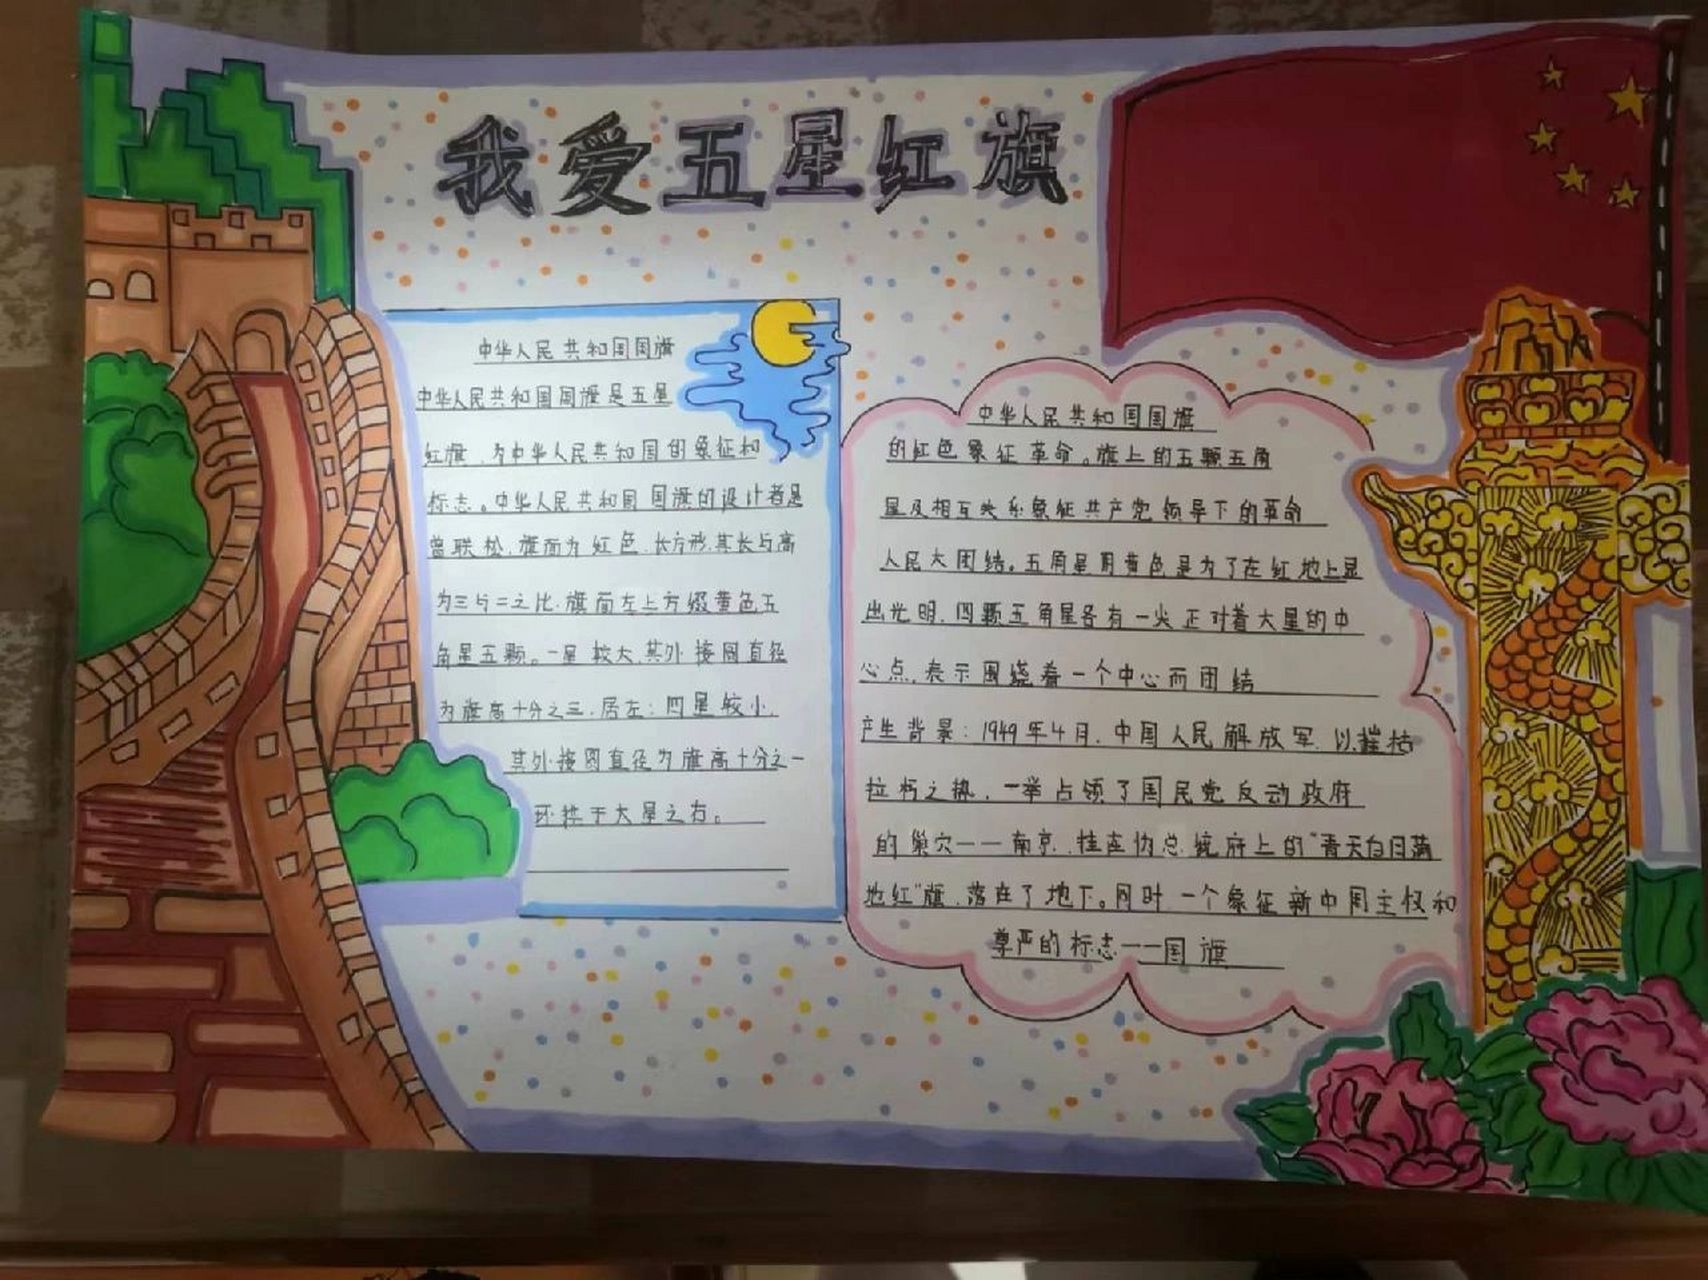 我爱五星红旗
中华人民共和国国旗
中华人民共和国国旗是五星
红旗,为中华人民共和国的象征和
标志。中华人民共和国国旗的设计者是
曾联松,旗面为红色,长方形,其长与高
为三与二之比,旗面左上方缀黄色五
角星五颗。一星较大,其外接圆直径
为旗高十分之三,居左;四星较小,
其外接圆直径为旗高十分之一
环拱于大星之右。
中华人民共和国国旗
的红色象征革命。旗上的五颗五角
星及相互关系象征共产党领导下的革命
人民大团结。五角星用黄色是为了在红地上显
出光明,四颗五角星各有一尖正对着大星的中
心点,表示围绕着一个中心而团结
产生背景:1949年4月,中国人民解放军,以摧枯
拉朽之势,一举占领了国民党反动政府
的巢穴——南京,挂在伪总统府上的“青天白日满
地红”旗,落在了地下。同时,一个象征新中国主权和
尊严的标志——国旗